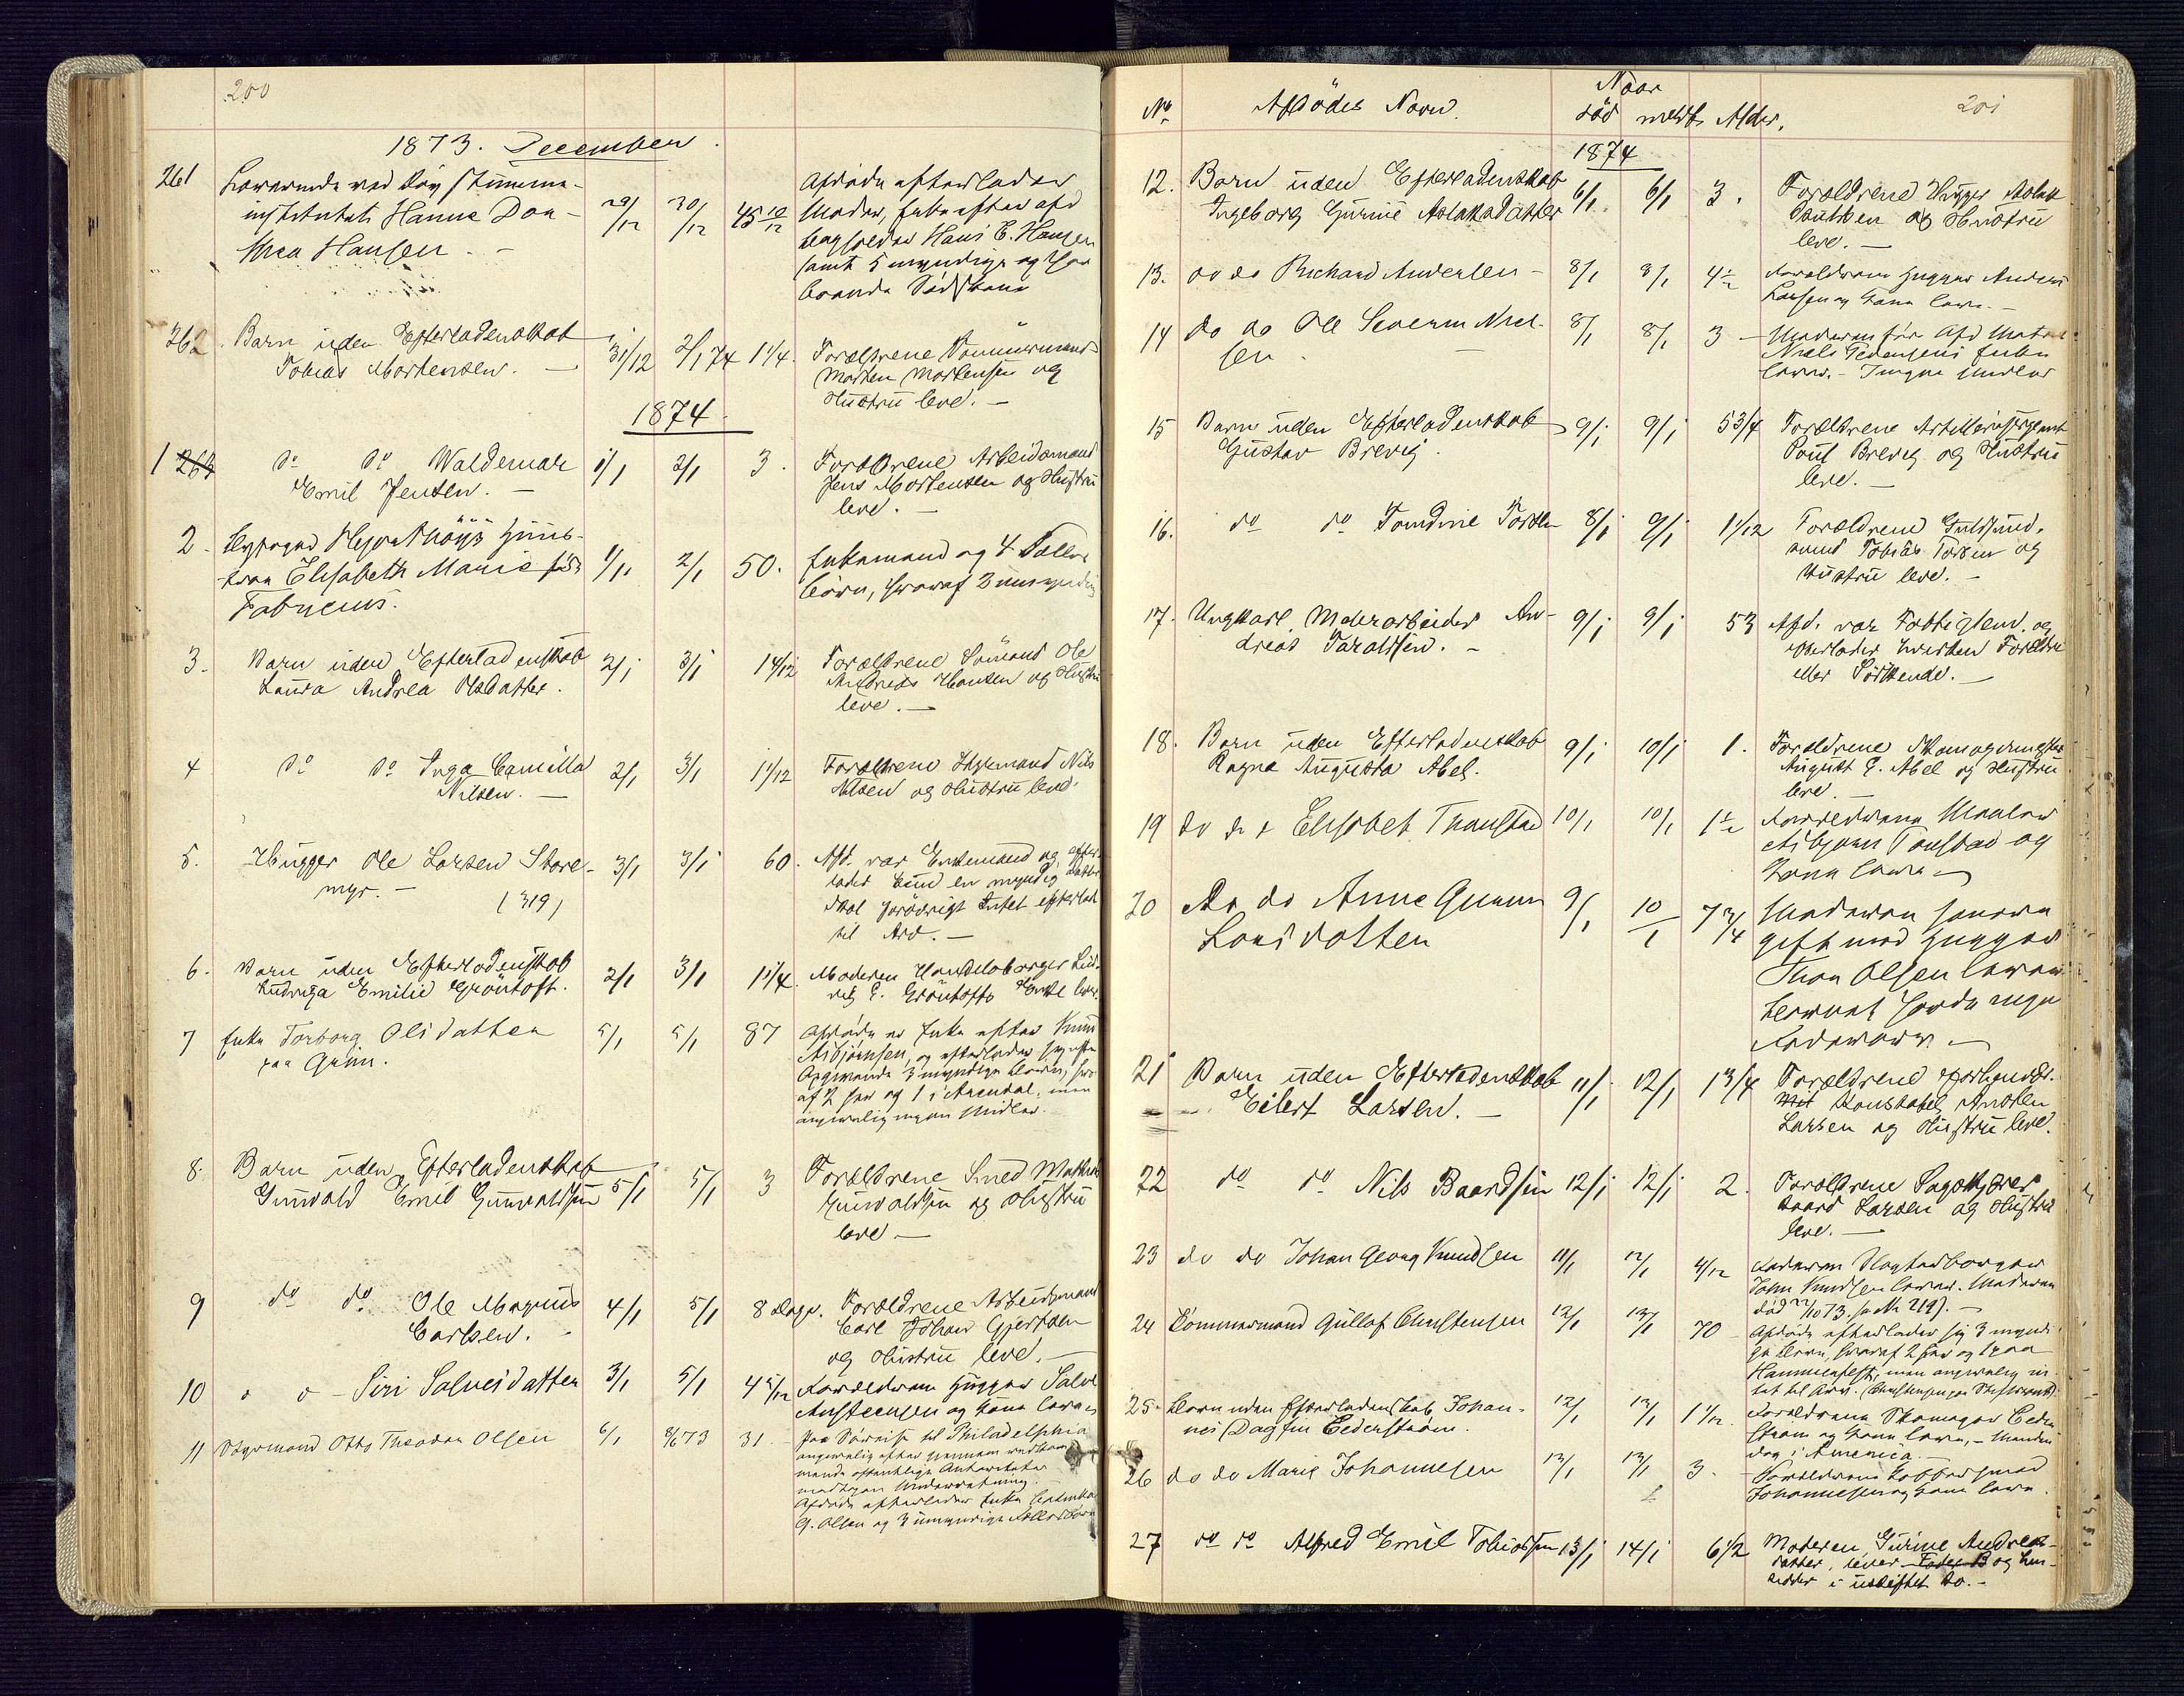 200
1873. December
261 Lærerinde ved Døvstumme-
institutet Hanne Doro-
thea Hansen
29/12 30/12 45 10/12
Afdøde efterlader
Moder, Enke efter afd
Hans C. Hansen
samt 5 myndige og her
boende Sødskend
262 Barn uden Efterladenskab
Tobias Mortensen. —
31/12 2/1 74 1 1/4.
Forældrene Tømmermand
Morten Mortensen og
Hustru leve. —
1874
1 263 do do Waldemar
Emil Jensen. —
1/1 2/1 3.
Forældrene Arbeidsmand
Jens Mortensen og Hustru
leve. —
2. Byfoged Hejersthøys Huus-
troe Elisabeth Marie født
Fabricius.
1/1. 2/1 50.
Enkemand og 4 Fælles
børn, hvoraf 2 umyndig
3. Barn uden Efterladenskab
Laura Andrea Olsdatter.
2/1 3/1 1 4/12
Forældrene Sømand Ole
Andreas Hansen og Hustru
leve. —
4 do do Inga Camilla
Nilsen. —
2/1 3/1 1 1/12
Forældrene Nils
Nilsen og Hustru leve.
5. Hugger Ole Larsen Store-
myr. —
(319)
3/1 3/1 60.
Afd. var Enkemand og efter-
lader kun en myndig Datter
skal forøvrigt Intet efterladt
til Arv. —
6. Barn uden Efterladenskab
Ludviga Emilie Grøntoft.
2/1 3/1 1 1/4.
Moderen Handelsborger Lud-
vig G. Grøntofts Enke lever
7 Enke Torborg Olsdatter
paa Grim.
5/1 5/1 87
Afdøde er Enke efter Knud
Asbjørnsen, og efterlader sig efter
Opgivende 3 myndige Børn, hvor
af 2 her og 1 i Arendal, men
angivelig ingen Midler.
8. Barn uden Efterladenskab
Gunvald Emil Gunvaldsen
5/1 5/1 3
Forældrene Smed Mathias
Gunvaldsen og Hustru
leve —
9 do do Ole Magnus
Carlsen. -
4/1 5/1 8 Dage.
Forældrene Arbeidsmand
Carl Johan Gjertsen
og Hustru leve. —
10 " " - Siri Salvesdatter
3/1 5/1 4 5/12
Forældrene Hugger Salve
Austeensen og Kone leve
11 Styrmand Otto Theodor Olsen
6/1 73 31
Paa Søreise til Philadelphia
angivelig efter gjennem vedkom-
mende offentlige Autoriteter
modtagen Underretning.
Afdøde efterlader Enke
G. Olsen og 3 umyndige Fællesbørn
No Afdødes Navn. Naar
død meldt Alder.
201
1874
12. Barn uden Efterladenskab
Ingeborg Gurine Aslaksdatter
6/1. 6/1 3.
Forældrene Hugger Aslak
Knutsen og Hustru
leve. —
13. do do Richard Andersen —
8/1 8/1 4 1/2
Forældrene Hugger Anders
Larsen og Kone leve. —
14 do do Ole Severin Niel-
sen. —
8/1 8/1 3
Moderen før Afd Matros
Niels Pedersens Enke
lever. — Ingen Midler
15 Barn uden Efterladenskab
Gustav Brevig.
9/1 9/1 5 3/4
Forældrene Artillerisergeant
Poul Brevig og Hustru
leve. —
16. do do Tomine Torsen
8/1 9/1 1 1/12
Forældrene
Tobias Torsen og
Hustru leve. —
17. Ungkarl, Malerarbeider An-
dreas Taraldsen. -
9/1 9/1 53
Afd. var Fattiglem. og
efterlader hverken Forældre
eller Søskende. —
18. Barn uden Efterladenskab
Ragna Augusta Abel.
9/1 10/1 1.
Forældrene Skomagermester
August E. Abel og Hustru
leve. —
19 do do Elisabet Thonstad
10/1 10/1 1 1/2
Forældrene Maaler
Asbjørn Tonstad og
Kone leve —
20 do do Anne Gunn
Larsdatter
9/1 10/1 7 3/4
Moderen senere
gift med Hugger
Thor Olsen lever
Barnet havde ingen
Faderarv. —
21 Barn uden Efterladenskab
Eilert Larsen. —
11/1 12/1 1 3/4
Forældrene forhenvær.
Konstabel Austen
Larsen og Hustru leve.
22 do do Nils Baardsen
12/1 12/1 2.
Forældrene
Baard Larsen og Hustru
leve. —
23 do do Johan Georg Knudsen
11/1 12/1 4/12
Faderen Slagterborger
John Knudsen lever. Moderen
død 22/10 73. se No 219). —
24 Tømmermand Gullof Christensen
12/1 13/1 70
Afdøde efterlader sig 3 myndi-
ge Børn, hvoraf 2 her og 1 paa
Hammerfest, men angivelig in-
tet til Arv.
25. Barn uden Efterladenskab Johan-
nes Dagfin Cederstrøm.
12/1 13/1 1 1/12
Forældrene Skomager Ceder
strøm og Kone leve, — Manden
dog i America. —
26 do do Marie Johannesen
13/1 13/1 3.
Forældrene Kobbersmed
Johannesen og Kone leve.
27 do do Alfred Emil Tobiassen
13/1 14/1 6 1/2
Moderen, Gurine Andreas-
datter, lever og hen-
sidder i uskiftet Bo. —